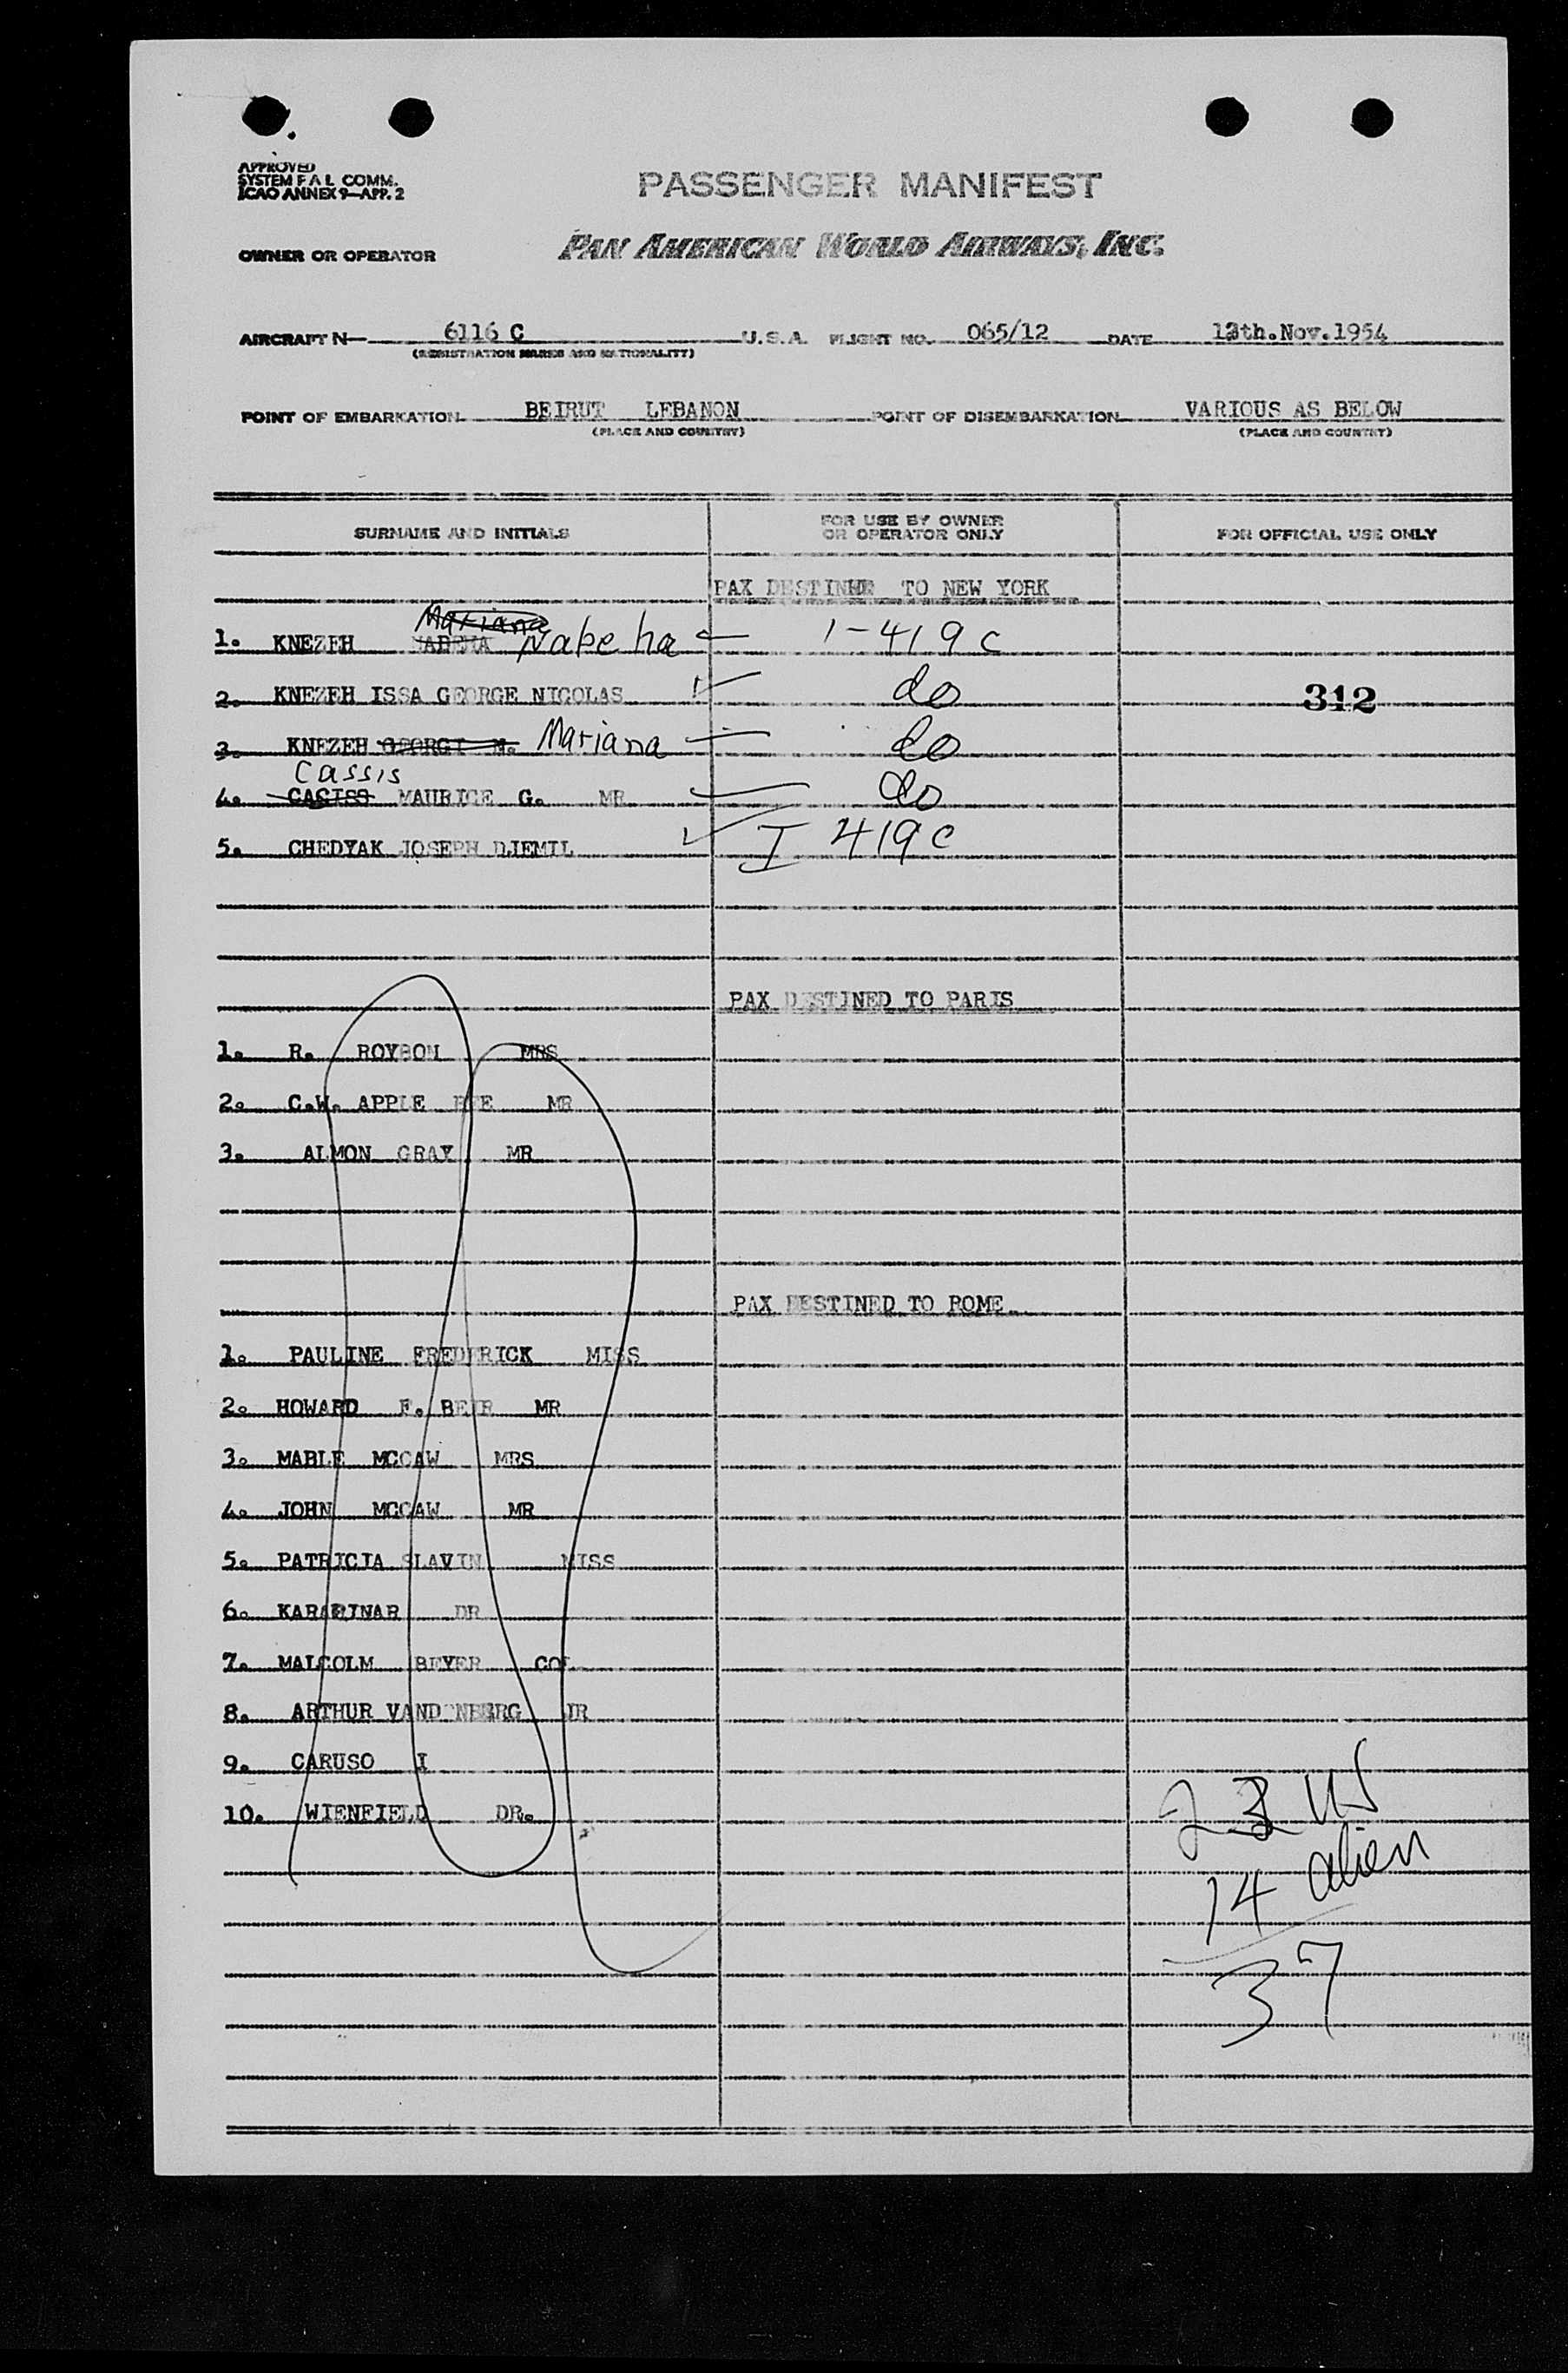 APPROVED
SYSTEM F A L COMM.
ICAO ANNEX 9—APP. 2
PASSENGER MANIFEST
OWNER OR OPERATOR PAN AMERICAN WORLD AIRWAYS, INC.
AIRCRAFT N— 6116 C U.S.A. FLIGHT NO. 065/12 DATE 13th.Nov.1954
(REGISTRATION MARKS AND NATIONALITY)
POINT OF EMBARKATION BEIRUT LEBANON POINT OF DISEMBARKATION VARIOUS AS BELOW
(PLACE AND COUNTRY) (PLACE AND COUNTRY)
SURNAME AND INITIALS FOR USE BY OWNER OR OPERATOR ONLY FOR OFFICIAL USE ONLY
PAX DESTINED TO NEW YORK
Mariana
1. KNEZEH Nabeha 1-419 C
2. KNEZEH ISSA GEORGE NICOLAS do 312
3. KNEZEH GEORGI N. Mariana do
Cassis
4. CACISS MAURICE G. MR do
5. CHEDYAK JOSEPH DJEMIL I 419 C
PAX DESTINED TO PARIS
1. R. ROYBOM MRS
2. C.W. APPLE BYE MR
3. ALMON GRAY MR
PAX DESTINED TO ROME
1. PAULINE FREDERICK MISS
2. HOWARD F. BEIR MR
3. MABLE MCCAW MRS
4. JOHN MCCAW MR
5. PATRICIA SLAVIN MISS
6. DR
7. MALCOLM BEYER COL
8. ARTHUR VANDENBERG JR
9. CARUSO I
10. WIENFIELD DR.
23 US
14 alien
37